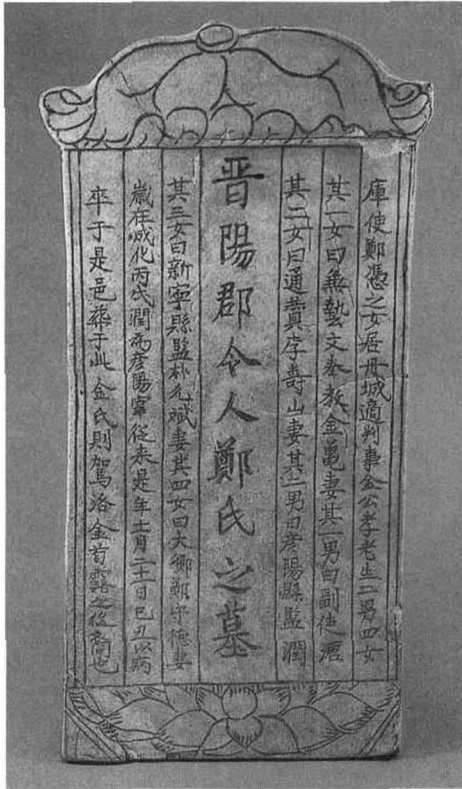 庫使鄭憑之女居丹城適判事金公孝老生二男四女
其一女曰兼藝文奉教金黽妻其一男曰副使
其二女曰通賛李壽山妻其二男曰彦陽縣監潤
晋陽郡令人鄭氏之墓
其三女曰新寧縣監朴允妻其四女曰大卿鄭守德妻
歲在成化丙戌潤爲彦陽宰從来是年十一月二十日己丑以病
卒于是邑葬于此金氏則駕洛金首露之後裔也